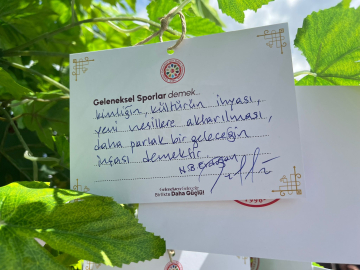 Geleneksel Sporlar demek..
kimliğin, kültürün ihyası,
yeni nesillere aktarılması,
daha parlak bir geleceğin
inşası demektir.
N.B. Erdoğan
Birlikte Daha Güçlü!